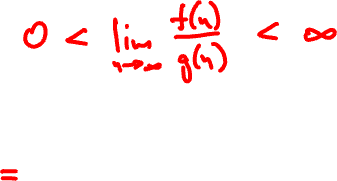 0 < lim n→∞ f(n)/g(n) < ∞
=